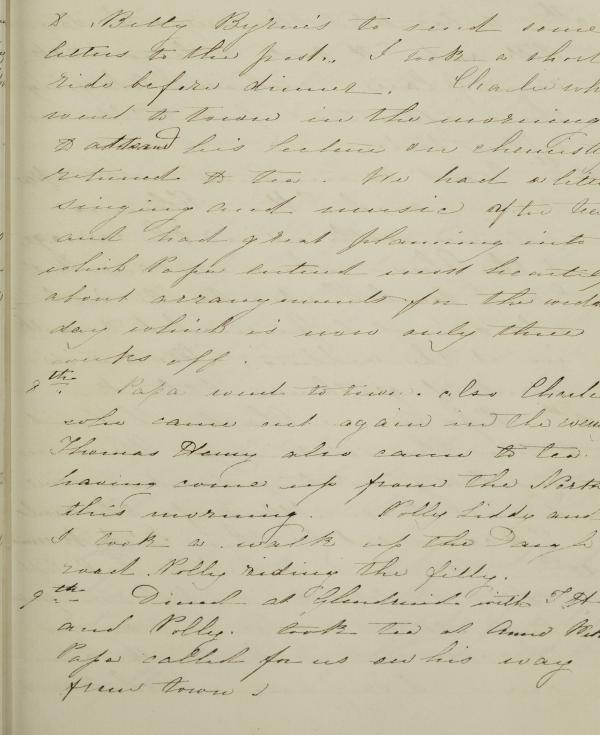 & Betty Byrne's to send some
letters to the post. I took a short
ride before dinner. Charlie wh
went to town in the morning
to attend his lecture on chemist
returned to tea. We had a litt
singing and music after tea
and had great planning into
which Papa entered most heartily
about arrangements for the wed
day which is now only three
weeks off.
8th. Papa went to town. also Charli
who came out again in the
Thomas Henry also came to tea
having come up from the North
this morning. Polly Liddy and
I took a walk up the
road Polly riding the filly.
9th Dined at with T H
and Polly. took tea at Anne
Papa called for us on his way
from town